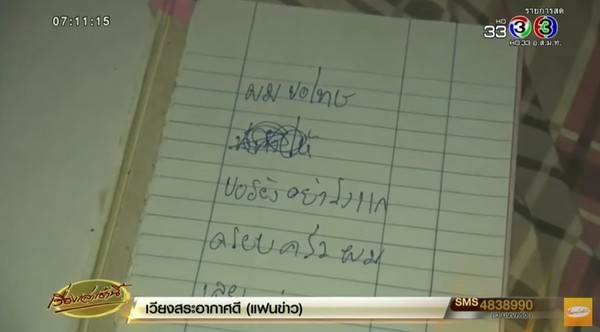 07:11:15
รายการสด
HD 33 3
HD 33 อ.ส.ม.ท.
ผมขอโทษ
ขอร้องอย่ารังแก
ครอบครัวผม
เรื่องเล่าเช้านี้
เวียงสระอากาศดี (แฟนข่าว)
SMS 4838990